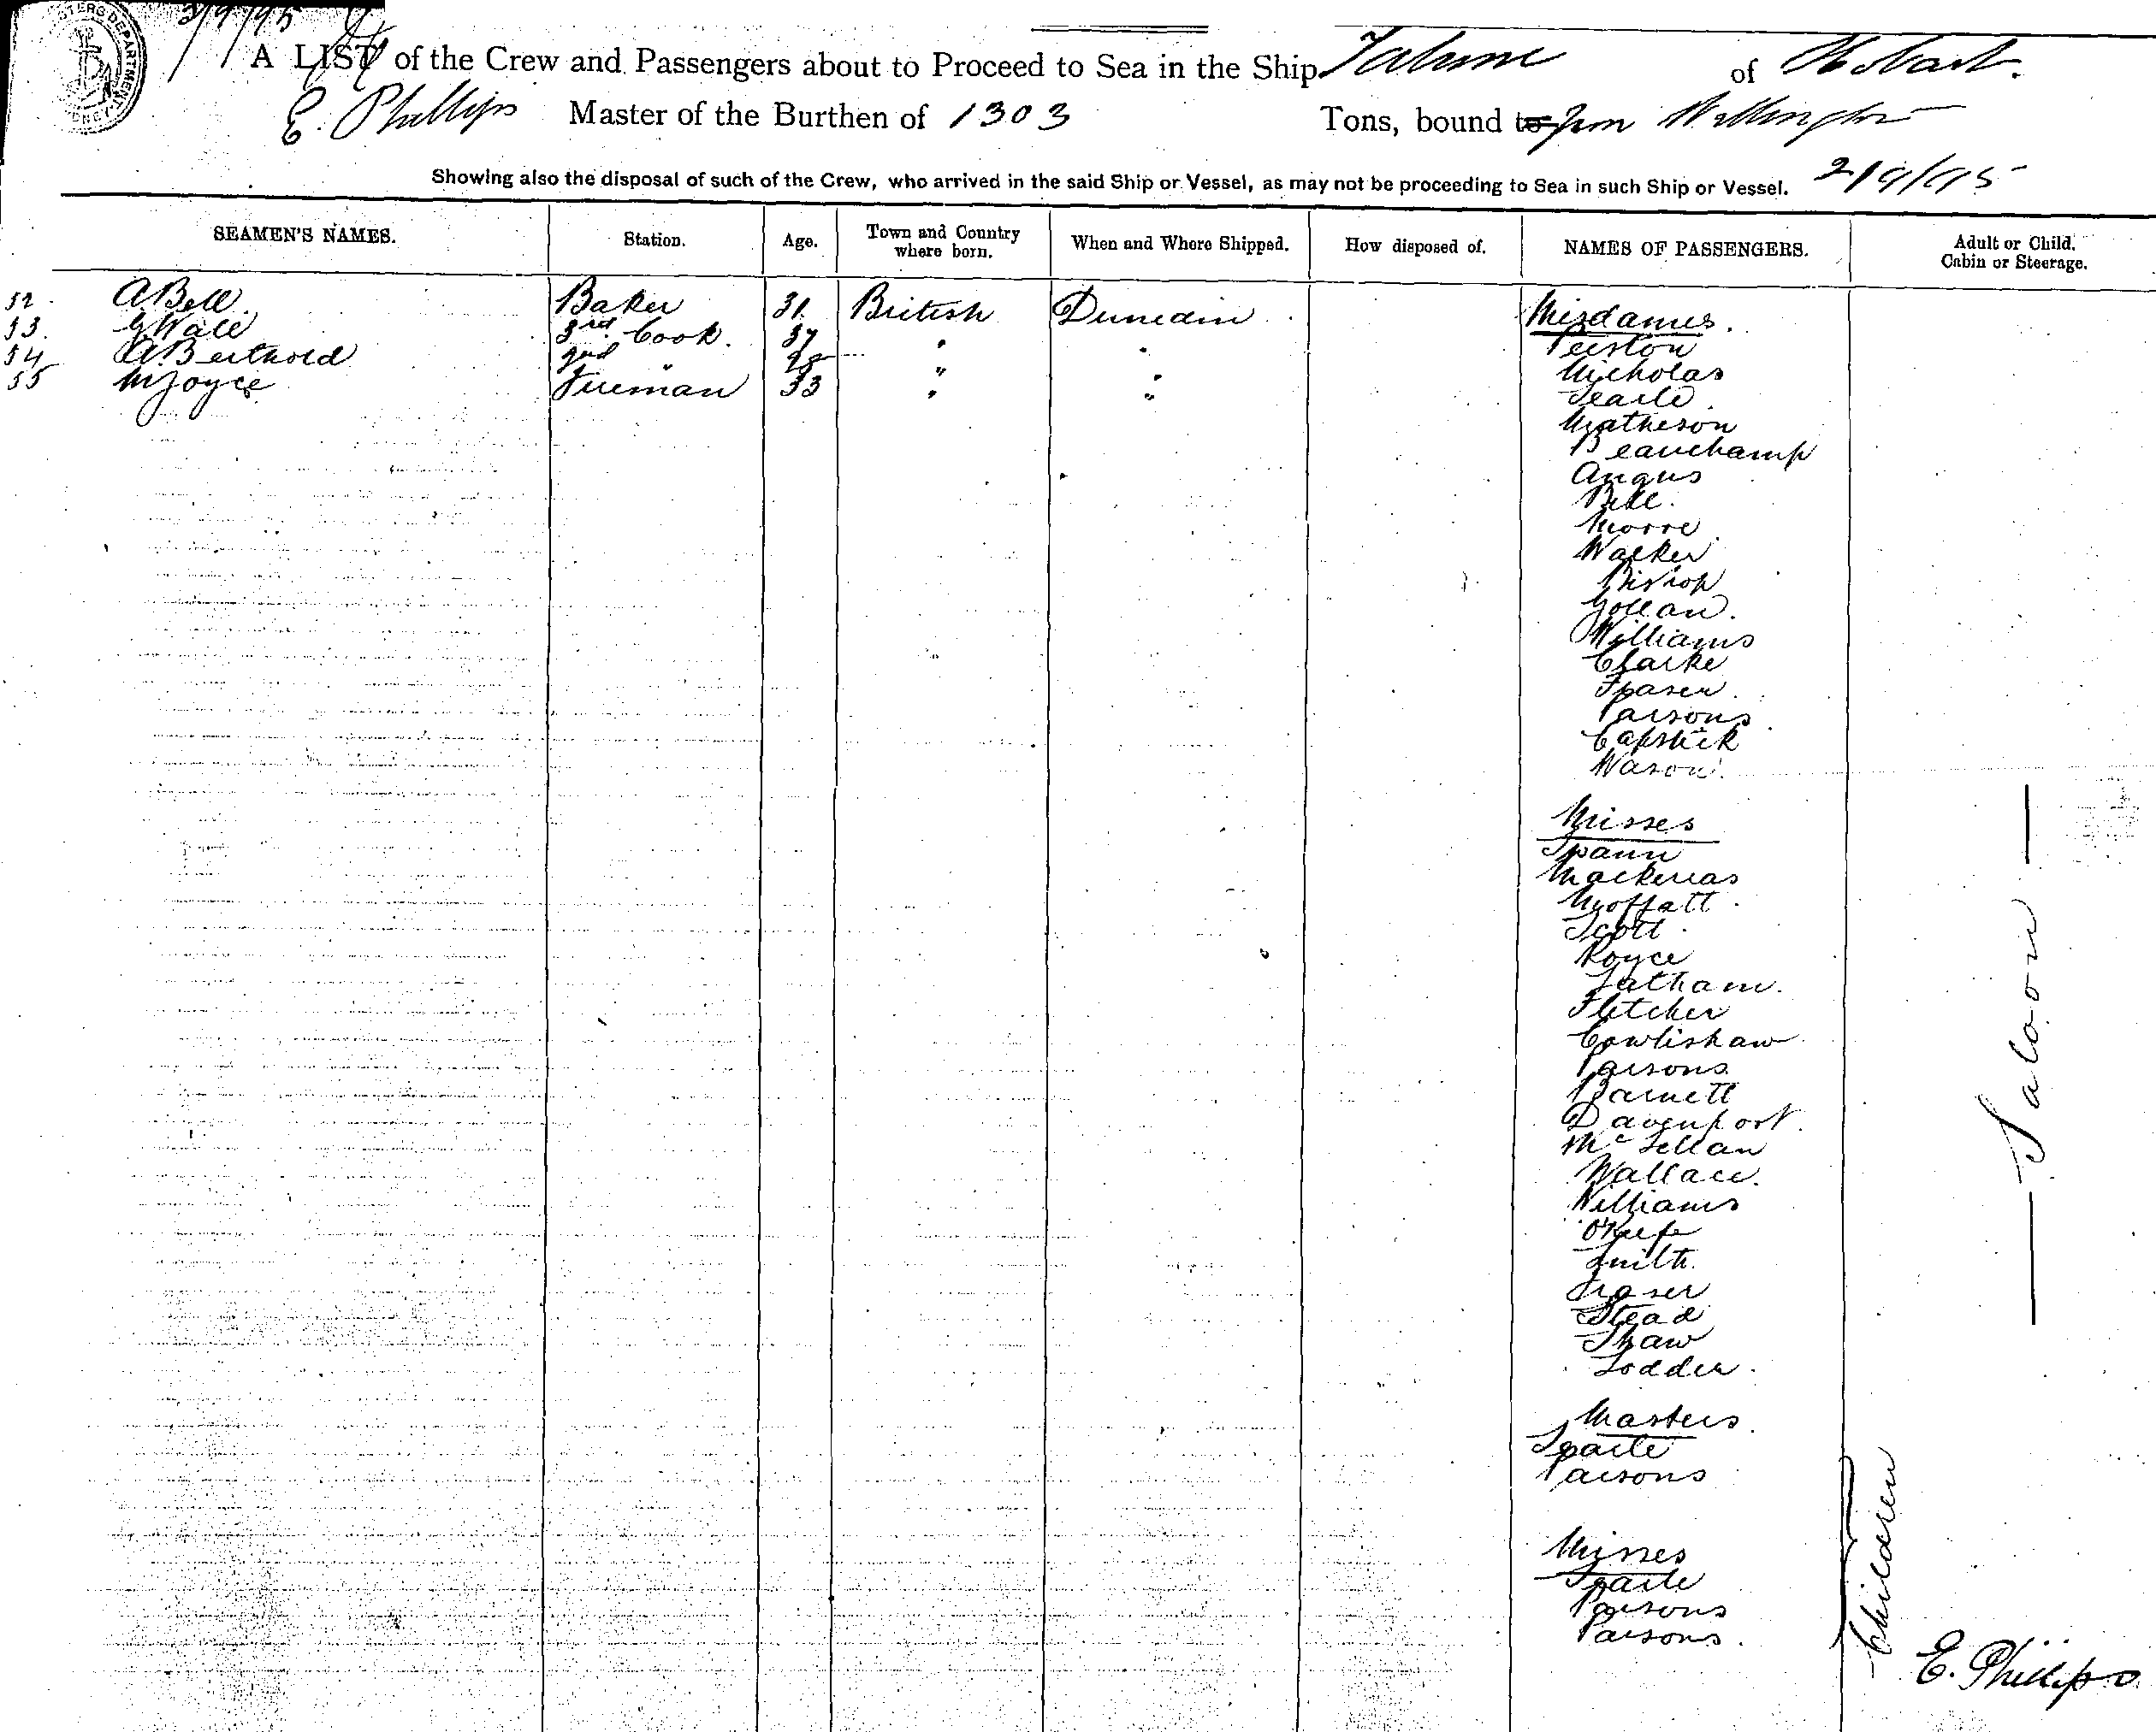 3/9/95
A LIST of the Crew and Passengers about to Proceed to Sea in the Ship Talune of Hobart.
E. Phillips Master of the Burthen of 1303 Tons, bound to from Wellington
Showing also the disposal of such of the Crew, who arrived in the said Ship or Vessel, as may not be proceeding to Sea in such Ship or Vessel. 2/9/95
SEAMEN'S NAMES. Station. Age. Town and Country where born. When and Where Shipped. How disposed of. NAMES OF PASSENGERS. Adult or Child. Cabin or Steerage.
52 A Bell Baker 31. British Dunedin
53. G Wall 3rd Cook. 37 " "
54 A Berthold 2nd " 28 " "
55 M Joyce Fireman 33 " "
Mesdames.
Nicholas
Searle
Matheson
Beauchamp
Angus
Bell.
Moore
Walker
Bishop
Gollan.
Williams
Clarke
Fraser
Parsons
Capstick
Wason.
Misses
Spann
Moffatt
Scott
Royce
Latham.
Fletcher
Cowlishaw
Parsons.
Barnett
Davenport.
McLellan
Wallace.
Williams
O'Keefe
Smith.
Fraser
Stead
Shaw
Lodder.
Saloon
Masters
Searle
Parsons
Misses
Searle
Parsons
Parsons.
Children
E. Phillips